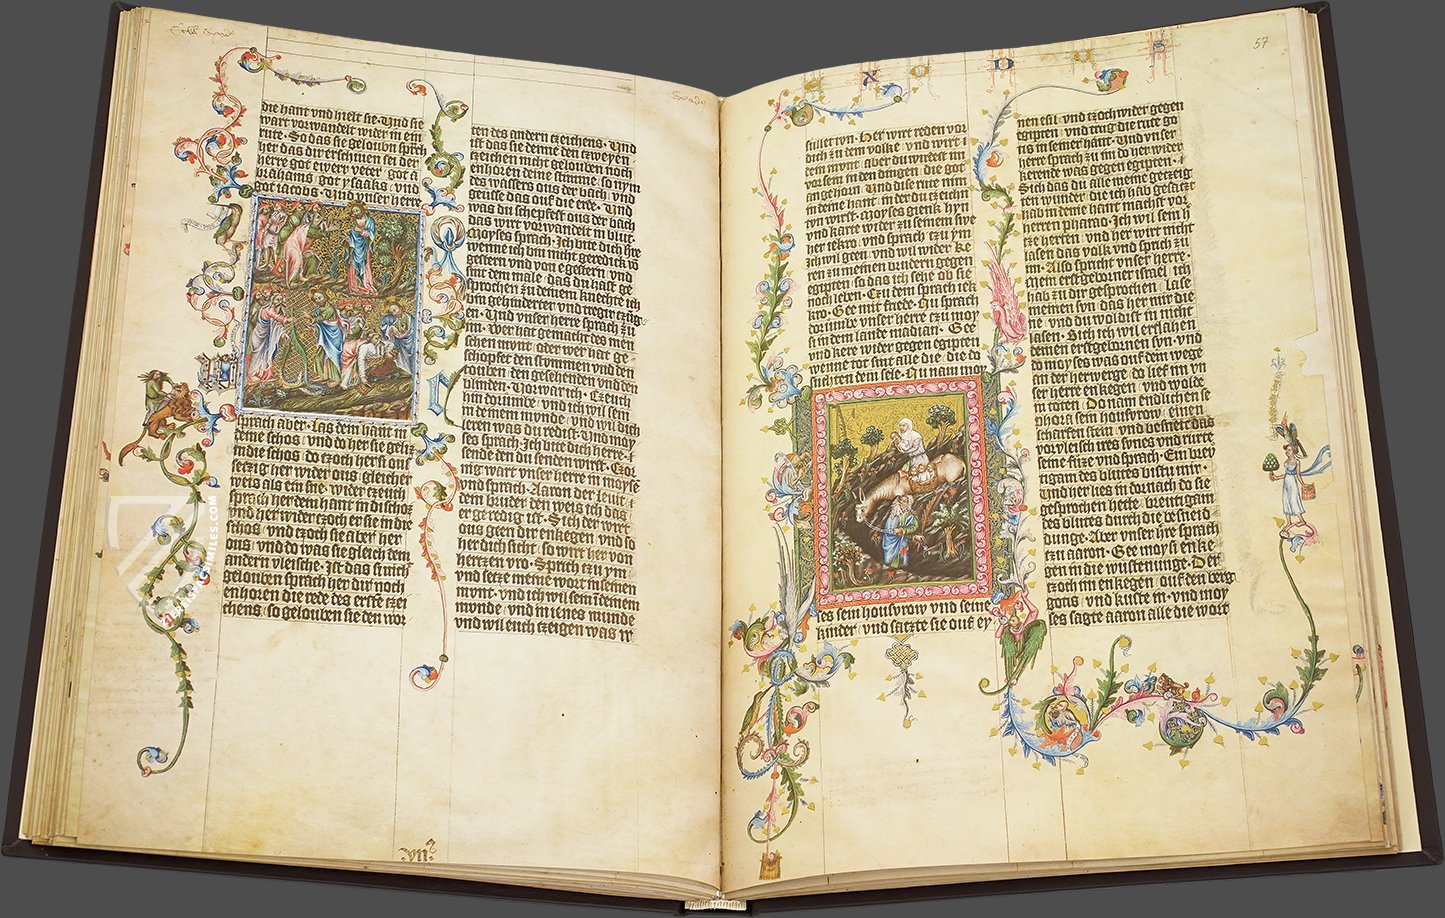 57
X O D
die hant vnd hielt sie · Vnd sie
wart vorwandelt wider in ein
rute · So das sie gelouben sprach
her das dir erschinen sei der
herre got ewer veter · got a
brahams · got ysaaks · vnd
got iacobs · Vnd vnser herre
sprach aber · Las dein hant in
deine schos · vnd do her sie gein
in die schos · do tzoch her sie ous
setzig her wider ous gleicher
weis als ein sne · wider tzeuch
sprach her dein hant in die schos
vnd her wider tzoch er sie in die
schos · vnd tzoch sie aber her
ous · vnd do was sie gleich dem
andern vleische · Jst das si nich
gelouben sprach her dir noch
en horen die rede des ersten tzei
chens · so gelouben sie den wor
ten des andern tzeichens · Vnd
ist das sie denne den tzweyen
tzeichen nicht gelouben noch
en horen deine stimme · so nym
des wassers ous der bach · vnd
geusse das ouf die erde · Vnd
was du schepfest ous der bach
das wirt vorwandelt in blut ·
Moyses sprach · Jch bite dich h're
wenne ich bin nicht geredick vo
gestern vnd von egestern · vnd
sint dem male · das du hast ge
sprochen zu deinem knechte ich
bin gehinderter vnd tregir tzug
in · Wer hat gemacht des men
schen munt · oder wer hat ge
schopfet den stummen vnd den
touben · den gesehenden vnd den
blinden · Nor war ich · Czeuch
hin dorumbe · vnd ich wil sein
in deinem munde · vnd ich wil dich
leren was du redist · Vnd moy
ses sprach · Jch bite dich herre
sende den du senden wirst · Czor
nig wart vnser herre in moyse
vnd sprach · Aaron der leuit
dein bruder den weis ich das
er ge redig ist · Sich der wirt
ous geen dir enkegen · vnd so
her dich sicht · so wirt her von
hertzen vro · Sprich tzu ym
vnd setze meine wort in seinen
munt · vnd ich wil sein in deinem
munde · vnd in ienes munde
vnd wil euch tzeigen was ir
tullet tyn · Her wirt reden vor
dich zu dem volke · vnd wirt
dein munt · aber du wirdest im
vor sein in den dingen · die got
angehoren · Vnd dise rute nim
in deine hant · in der du tzeichen
tyn wirst · Moyses gienk hyn
vnd karte wider zu seinem swe
her ietro · vnd sprach tzu ym
ich wil geen · vnd wil wider ke
ren zu meinen brudern gegen
egipten · so das ich sehe ob sie
noch leben · Czu dem sprach ie
tro · Gee mit frede · Nu sprach
dorumbe vnser herre tzu moy
ses in dem lande madian · Gee
vnd kere wider gegen egipten
wenne tot sint alle die · die do
suchten dein sele · Nu nam moy
ses sein housfrow vnd seine
kinder · vnd satzte sie ouf ey
nen esil · vnd tzoch wider gegen
egipten · vnd trug die rute go
tis in seiner hant · Vnd vnser
herre sprach zu im do her wider
kerende was gegen egipten ·
Sich das du alle meine getzeig
nusse der wunder · die ich hab gesatzt
in deine hant machst vor
herren pharao · Jch wil sein h
tze herten · vnd her wirt nicht
lasen das volk · vnd sprich zu
im · Also spricht vnser herre ·
mein erstgeborner israel · ich
hab zu dir gesprochen · Lase
mein svn · das her mir die
ne · vnd du woldist in nicht
lasen · Sich ich wil erslahen
deinen erstgebornen svn · vnd
do moyses was ouf dem wege
in der herwerge · do lief im vn
ser herre enkegen · vnd wolde
in toten · Do nam endlichen se
phora sein housfrow · einen
scharfen stein · vnd besneit das
vorvleisch ires svnes · vnd rurte
seine fuze · vnd sprach · Ein brey
tgam des blutes bistu mir ·
Vnd her lies in · dornach do sie
gesprochen hette · breutigam
des blutes durch die besneid
dunge · Aber vnser herre sprach
tzu aaron · Gee moysi enke
gen in die wustenunge · Der
tzoch im enkegen · ouf den berg
gotis · vnd kuste in · vnd moy
ses sagte aaron alle die wort